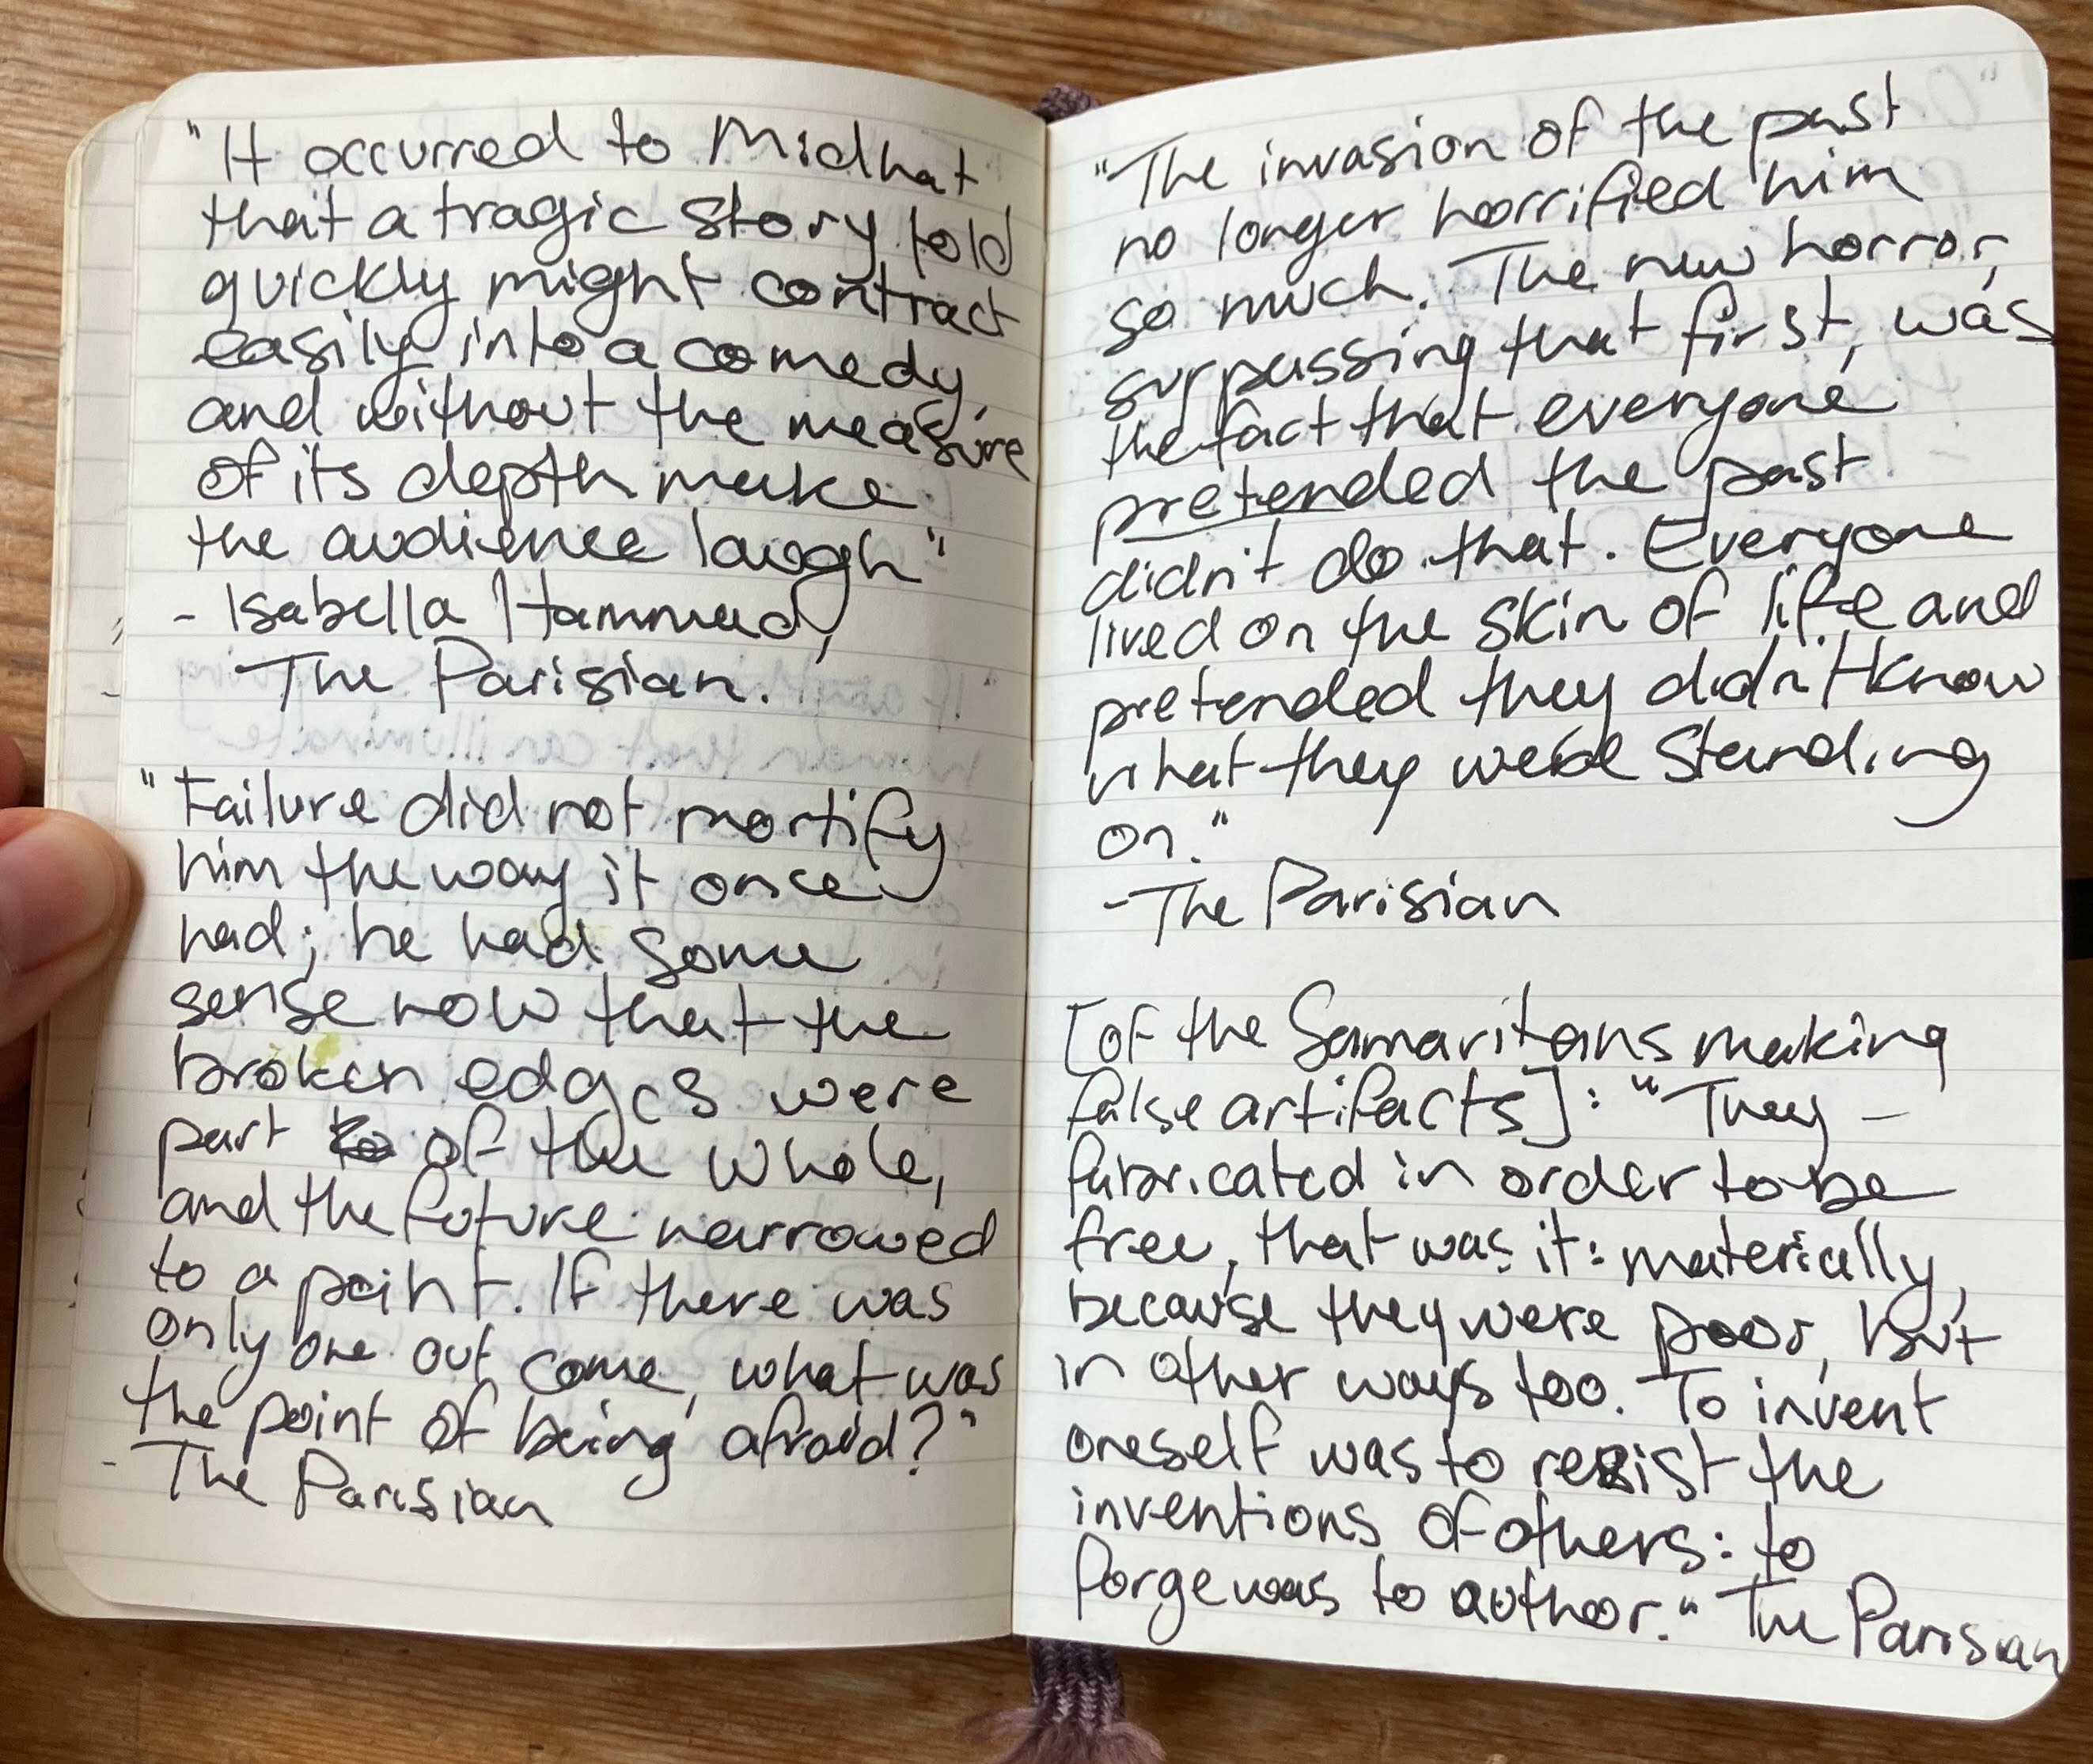 "It occurred to Midhat
that a tragic story told
quickly might contract
easily into a comedy,
and without the measure
of its depth make
the audience laugh"
- Isabella Hammad,
The Parisian.
"Failure did not mortify
him the way it once
had; he had some
sense now that the
broken edges were
part of the whole,
and the future narrowed
to a point. If there was
only one out come, what was
the point of being afraid?"
- The Parisian
"The invasion of the past
no longer horrified him
so much. The new horror,
surpassing that first, was
the fact that everyone
pretended the past
didn't do that. Everyone
lived on the skin of life and
pretended they didn't know
what they were standing
on."
- The Parisian
[of the Samaritans making
false artifacts]: "They –
fabricated in order to be
free, that was it: materially,
because they were poor, but
in other ways too. To invent
oneself was to resist the
inventions of others: to
forge was to author." The Parisian